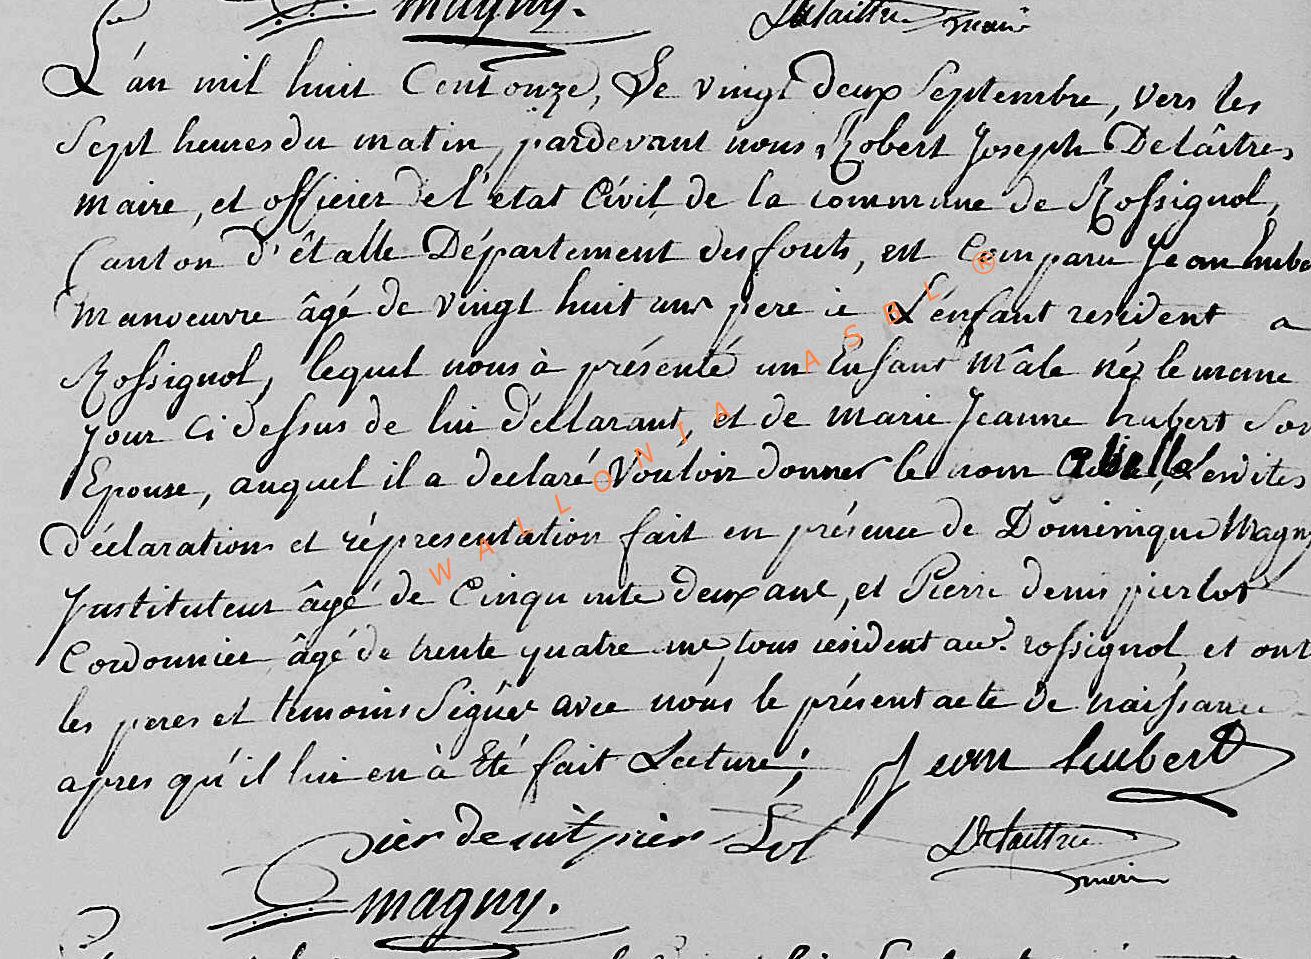 magny. Delaittre maire
L'an mil huit Cent onze, Le vingt deux Septembre, vers les
Sept heures du matin, pardevant nous, Robert Joseph Delâitre,
maire, et officier de l'etat Civil de la commune de Rossignol,
Canton d'êtalle Département des forets, est Comparu Jean hube
Manoeuvre âgé de vingt huit ans pere de L'enfant resident a
Rossignol, lequel nous à présenté un Enfant Mâle né le meme
jour Ci dessus de lui déclarant, et de marie Jeanne hubert Son
Epouse, auquel il a declaré Vouloir donner le nom Lesdites
déclarations et réprésentation fait en présence de Dominique Magny
Instituteur âgé de Cinquante deux ans, et Pierre denis pierlot
Cordonnier âgé de trente quatre ans, tous resident aud. rossignol, et ont
les peres et temoins Signer avec nous le présent acte de naissance
apres qu'il lui en à été fait Lecture; Jean hubert
pier Lot Delaittre
maire
magny.
WALLONIA ASBL ®